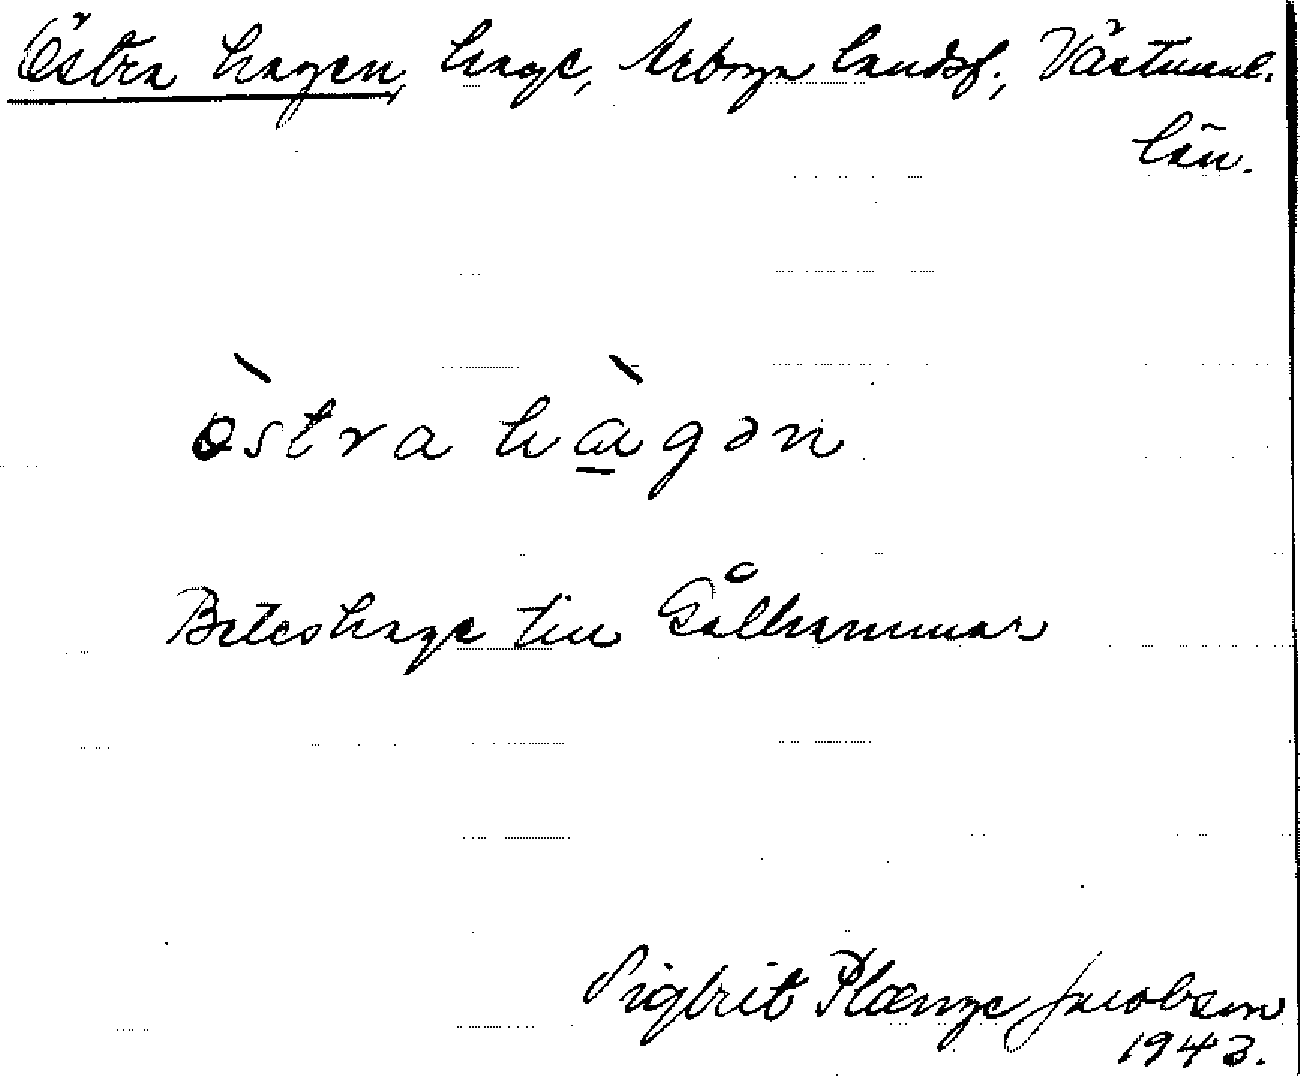 Östra hagen, hage, Arboga landsf., Västmanl.
län.
östra hagən
Beteshage till Gålhammar
Sigbrit Plænge Jacobson
1943.